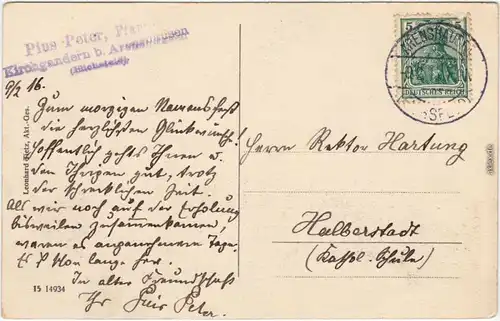 Pius Peter, Pfar
Kirchgandern b. Arenshausen
(Eichsfeld)
9/2 16.
Zum morgigen Namensfest
die herzlichsten Glückwünsche!
Hoffentlich gehts Ihnen u.
den Ihrigen gut, trotz
der schrecklichen Zeit.
Als wir noch auf der Erholung
bisweilen zusammenkamen,
waren es angenehmere Tage.
Es ist schon lange her.
In alter Freundschaft
Ihr Pius Peter.
Leonhard Tietz, Akt.-Ges.
15 14934
5
DEUTSCHES REICH
ARENSHAUSEN
Herrn Rektor Hartung
Halberstadt
(Kathol. Schule)